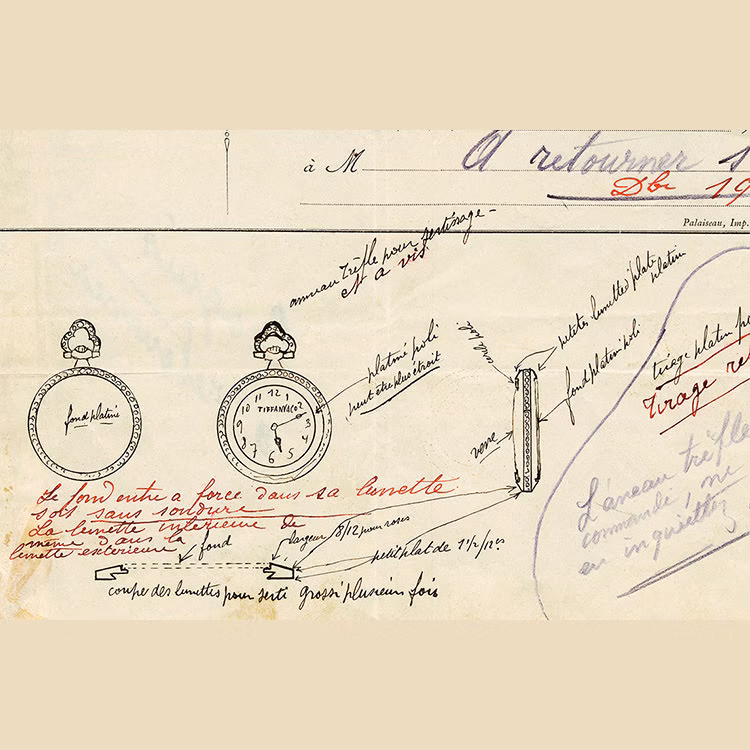 à M A retourner 1
Dbr 19
Palaiseau, Imp.
anneau trèfle pour sertissage -
et a vis
platine poli
peut être plus étroit
petites lunettes plate
platin
fond platin poli
verre
fond platine
12
11 1
10 2
TIFFANY & Co
9 3
8 4
7 5
6
tirage platin po
Tirage re
L'aneau trèfle
commandé, ne
en inquiettez
Le fond entre a force dans sa lunette
soit sans soudure
La lunette interieure de
même dans la
lunette exterieure
fond
largeur 8/12 pour roses
petit plat de 1 1/2/12es
coupe des lunettes pour serti grossi plusieurs fois